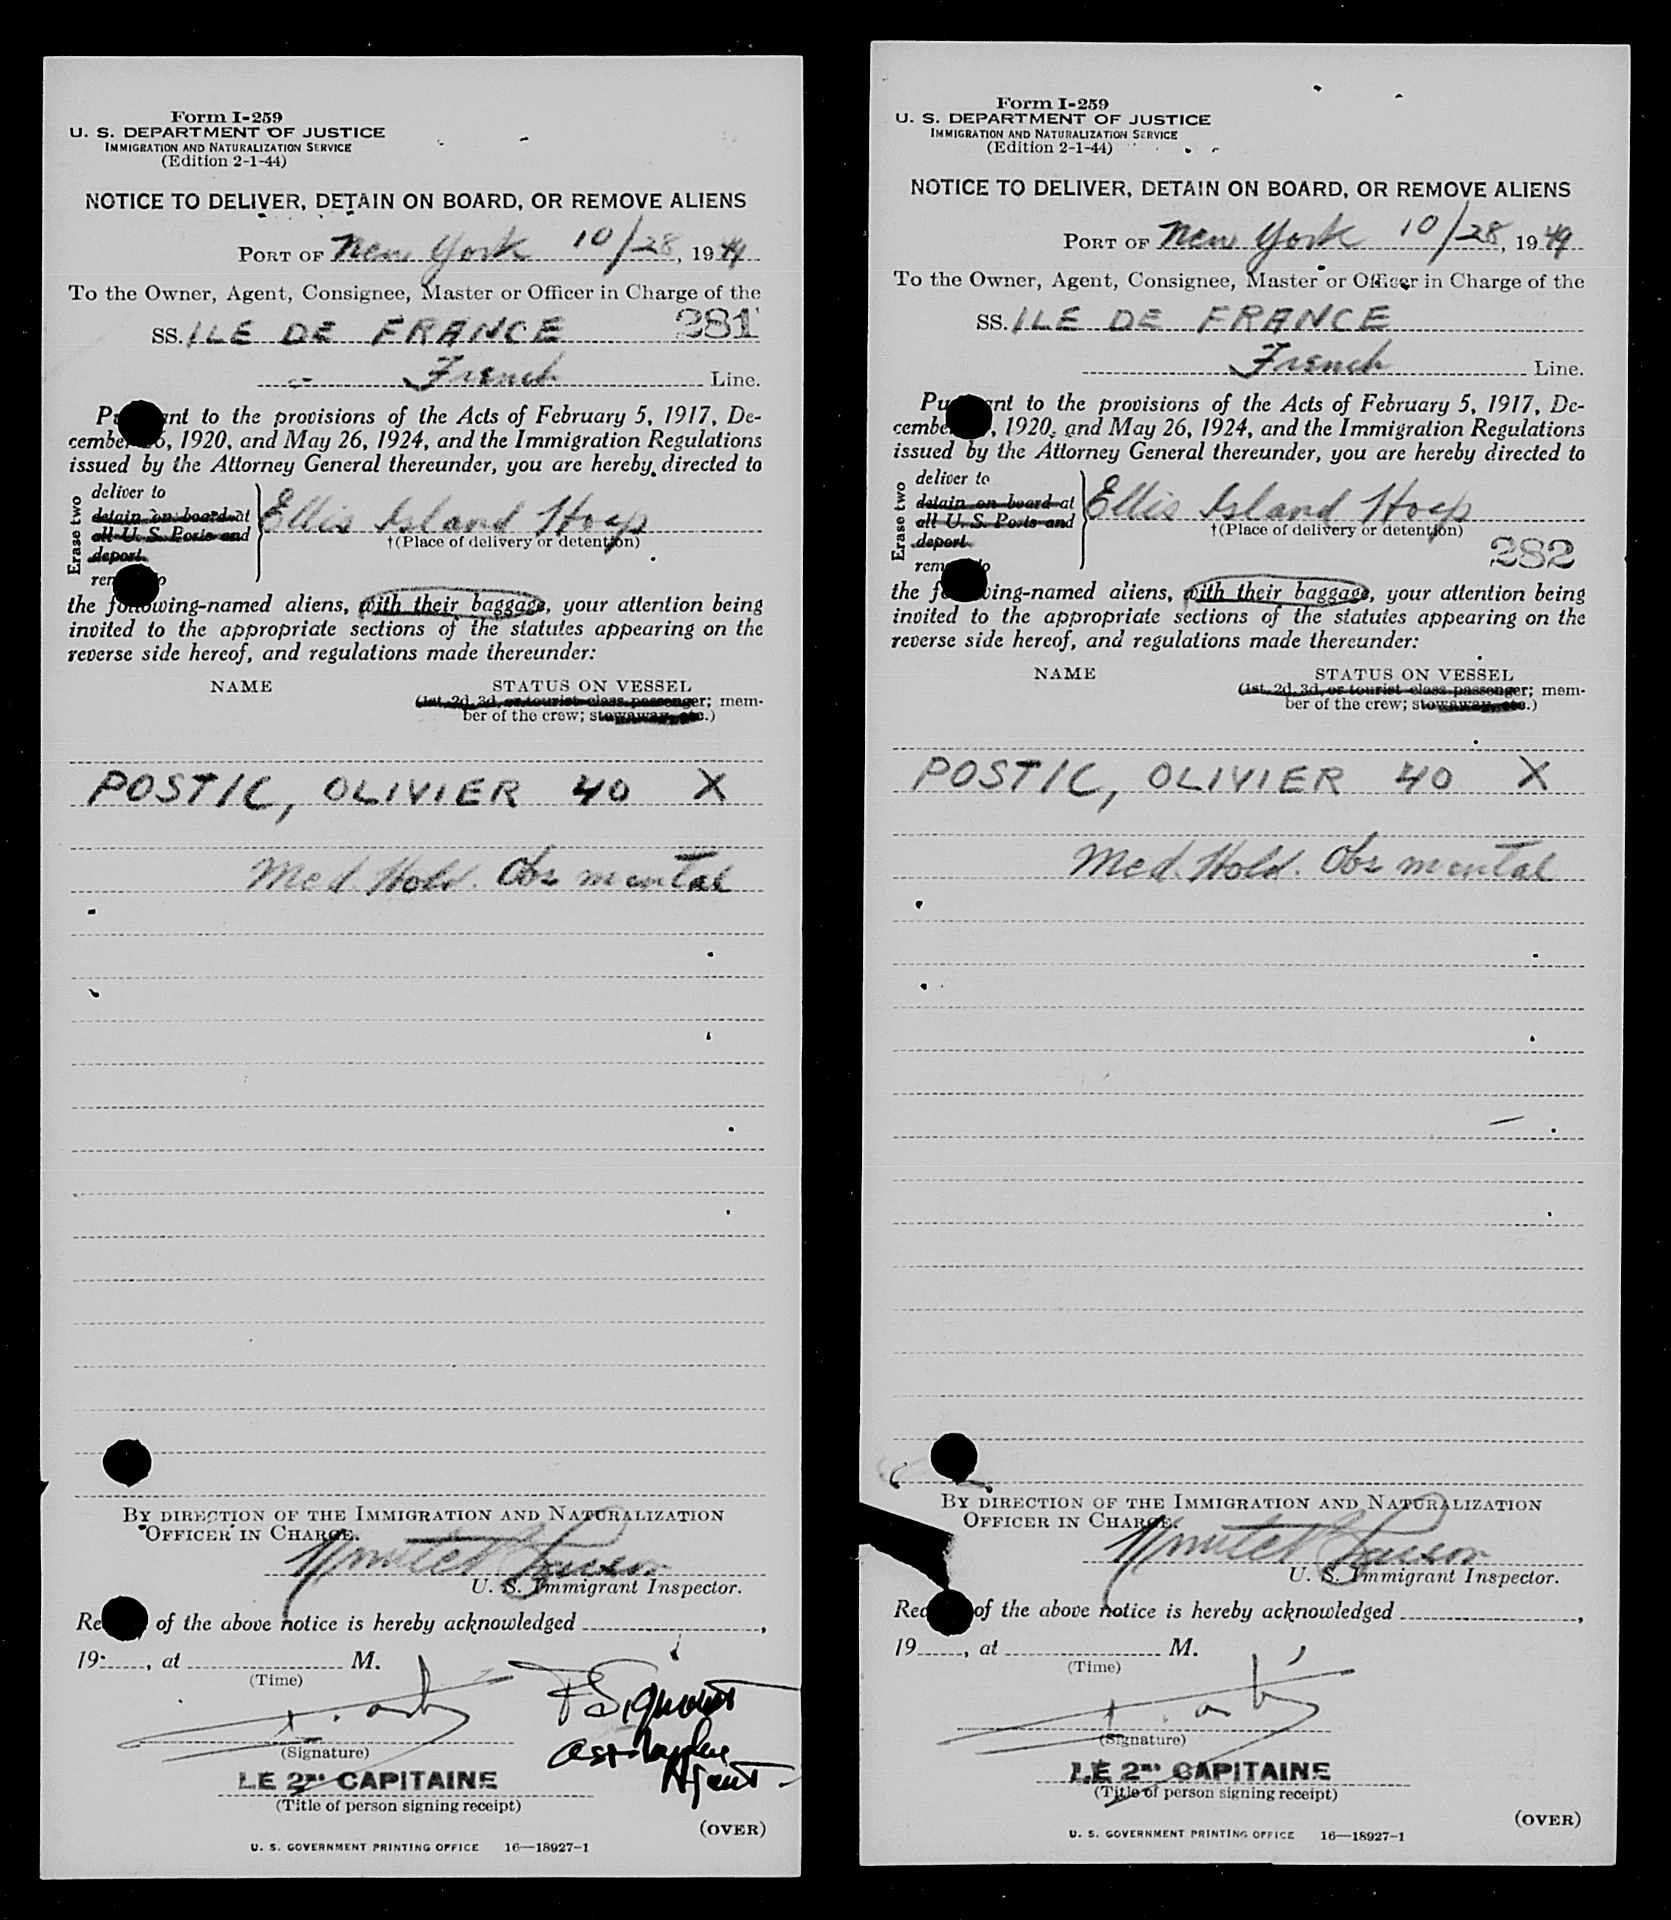 Form I-259
U. S. DEPARTMENT OF JUSTICE
IMMIGRATION AND NATURALIZATION SERVICE
(Edition 2-1-44)
NOTICE TO DELIVER, DETAIN ON BOARD, OR REMOVE ALIENS
PORT OF New York 10/28, 1949
To the Owner, Agent, Consignee, Master or Officer in Charge of the
SS. ILE DE FRANCE 281
French Line.
to the provisions of the Acts of February 5, 1917, De-
1920, and May 26, 1924, and the Immigration Regulations
issued by the Attorney General thereunder, you are hereby directed to
Erase two
deliver to
detain on board at
all U. S. Ports and
deport
Ellis Island Hosp
†(Place of delivery or detention)
the following-named aliens, with their baggage, your attention being
invited to the appropriate sections of the statutes appearing on the
reverse side hereof, and regulations made thereunder:
NAME STATUS ON VESSEL
(1st, 2d, 3d, or tourist class passenger; mem-
ber of the crew; stowaway, etc.)
POSTIC, OLIVIER 40 X
Med. Hold. Obs mental
BY DIRECTION OF THE IMMIGRATION AND NATURALIZATION
OFFICER IN CHARGE.
U. S. Immigrant Inspector.
of the above notice is hereby acknowledged ,
19 , at M.
(Time)
(Signature)
Agent
LE 2me CAPITAINE
(Title of person signing receipt)
(OVER)
U. S. GOVERNMENT PRINTING OFFICE 16—18927-1
Form I-259
U. S. DEPARTMENT OF JUSTICE
IMMIGRATION AND NATURALIZATION SERVICE
(Edition 2-1-44)
NOTICE TO DELIVER, DETAIN ON BOARD, OR REMOVE ALIENS
PORT OF New York 10/28, 1949
To the Owner, Agent, Consignee, Master or Officer in Charge of the
SS. ILE DE FRANCE
French Line.
to the provisions of the Acts of February 5, 1917, De-
1920, and May 26, 1924, and the Immigration Regulations
issued by the Attorney General thereunder, you are hereby directed to
Erase two
deliver to
detain on board at
all U. S. Ports and
deport
Ellis Island Hosp
†(Place of delivery or detention)
282
the following-named aliens, with their baggage, your attention being
invited to the appropriate sections of the statutes appearing on the
reverse side hereof, and regulations made thereunder:
NAME STATUS ON VESSEL
(1st, 2d, 3d, or tourist class passenger; mem-
ber of the crew; stowaway, etc.)
POSTIC, OLIVIER 40 X
Med. Hold. Obs mental
BY DIRECTION OF THE IMMIGRATION AND NATURALIZATION
OFFICER IN CHARGE.
U. S. Immigrant Inspector.
of the above notice is hereby acknowledged ,
19 , at M.
(Time)
(Signature)
LE 2me CAPITAINE
(Title of person signing receipt)
(OVER)
U. S. GOVERNMENT PRINTING OFFICE 16—18927-1